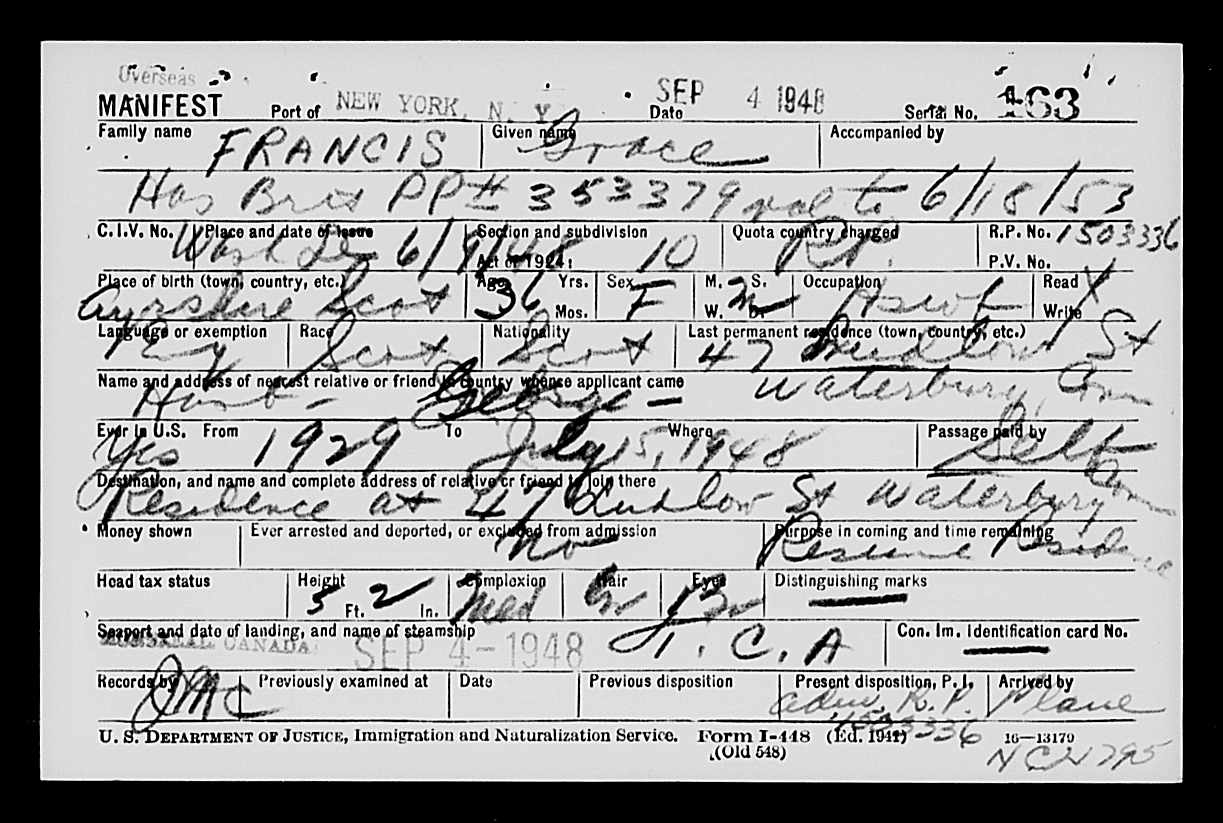 Overseas
MANIFEST Port of NEW YORK, N. Y. Date SEP 4 1948 Serial No. 163
Family name FRANCIS Given name Grace Accompanied by
Has Brit PP# 353379 val to 6/18/53
C.I.V. No. Place and date of issue Wash DC 6/9/48 Section and subdivision Act of 1924: 10 Quota country charged R.P. R.P. No. 1503336
P.V. No.
Place of birth (town, country, etc.) Ayrshire Scot Age 36 Yrs. Mos. Sex F M. S. W. D. M Occupation Hswf Read Write
Language or exemption Eng Race Scot Nationality Scot Last permanent residence (town, country, etc.) 47 Ludlow St
Name and address of nearest relative or friend in country whence applicant came Waterbury, Conn
Husb - George -
Ever in U.S. Yes From 1929 To July 15, 1948 Where Passage paid by Self
Destination, and name and complete address of relative or friend to join there
Residence at 47 Ludlow St Waterbury Conn
Money shown Ever arrested and deported, or excluded from admission No Purpose in coming and time remaining Resume Residence
Head tax status Height 5 Ft. 2 In. Complexion Med Hair Br Eyes Br Distinguishing marks
Seaport and date of landing, and name of steamship Con. Im. Identification card No.
MONTREAL, CANADA SEP 4-1948 T.C.A
Records by JMC Previously examined at Date Previous disposition Present disposition, P. I. adm. R.P. 1503336 Arrived by Plane
U. S. DEPARTMENT OF JUSTICE, Immigration and Naturalization Service. Form I-448 (Ed. 1941) 16—13179
(Old 548)